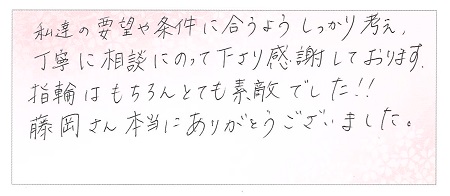 私達の要望や条件に合うようしっかり考え、
丁寧に相談にのって下さり感謝しております.
指輪はもちろんとても素敵でした!!
藤岡さん本当にありがとうございました。